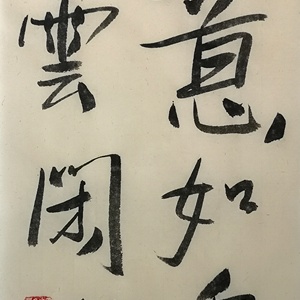 意如
雲閑